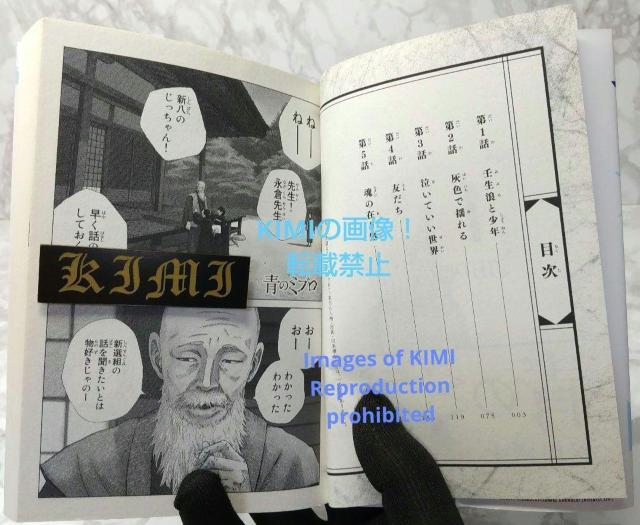 目次
第1話 壬生浪と少年 003
第2話 灰色で揺れる 075
第3話 泣いていい世界 119
第4話 友だち
第5話 魂の在
ねー
ねー
先生!
永倉先生
新八の
じっちゃん!
早く話の
しておく
青のミブロ
おー
おー
わかった
わかった
新選組の
話を聞きたいとは
物好きじゃのー
KIMI
KIMIの画像!
転載禁止
Images of KIMI
Reproduction
prohibited